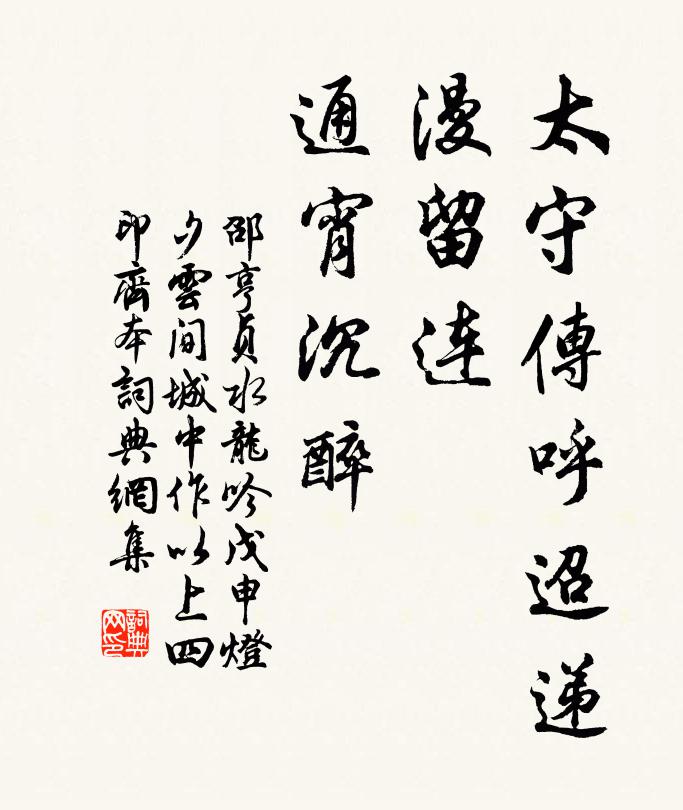 太守傳呼迢遞
漫留連
通宵沉醉
邵亨貞水龍吟戊申燈
夕雲間城中作以上四
印齋本詞典網集
詞典
网印